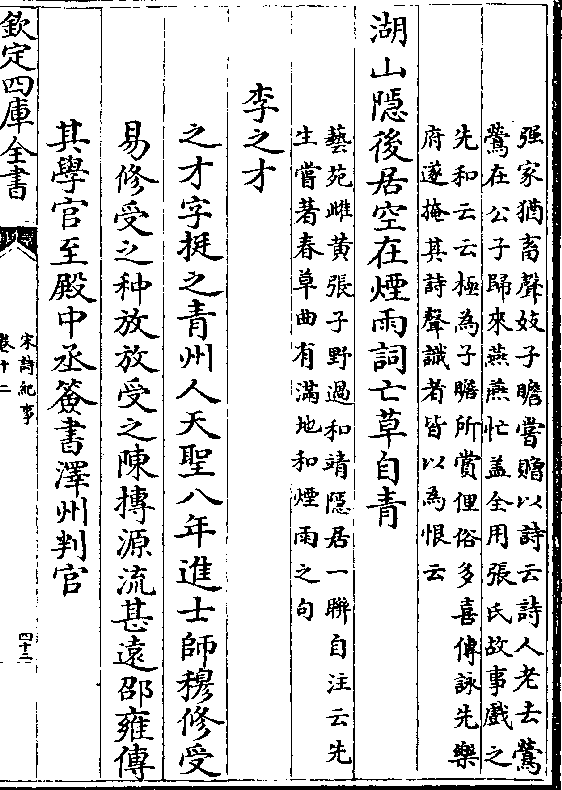 强家猶畜聲妓子瞻嘗贈以詩云詩人老去鶯
鶯在公子歸來燕燕忙蓋全用張氏故事戲之
先和云云極為子瞻所賞俚俗多喜傳詠先樂
府遂掩其詩聲識者皆以為恨云
湖山隠後居空在煙雨詞亡草自青
藝苑雌黄張子野過和靖隠居一聯自注云先
生嘗著春草曲有滿地和煙雨之句
李之才
之才字挺之青州人天聖八年進士師穆修受
易修受之种放放受之陳摶源流甚遠邵雍傳
其學官至殿中丞簽書澤州判官
欽定四庫全書
宋詩紀事
卷十二
四十二